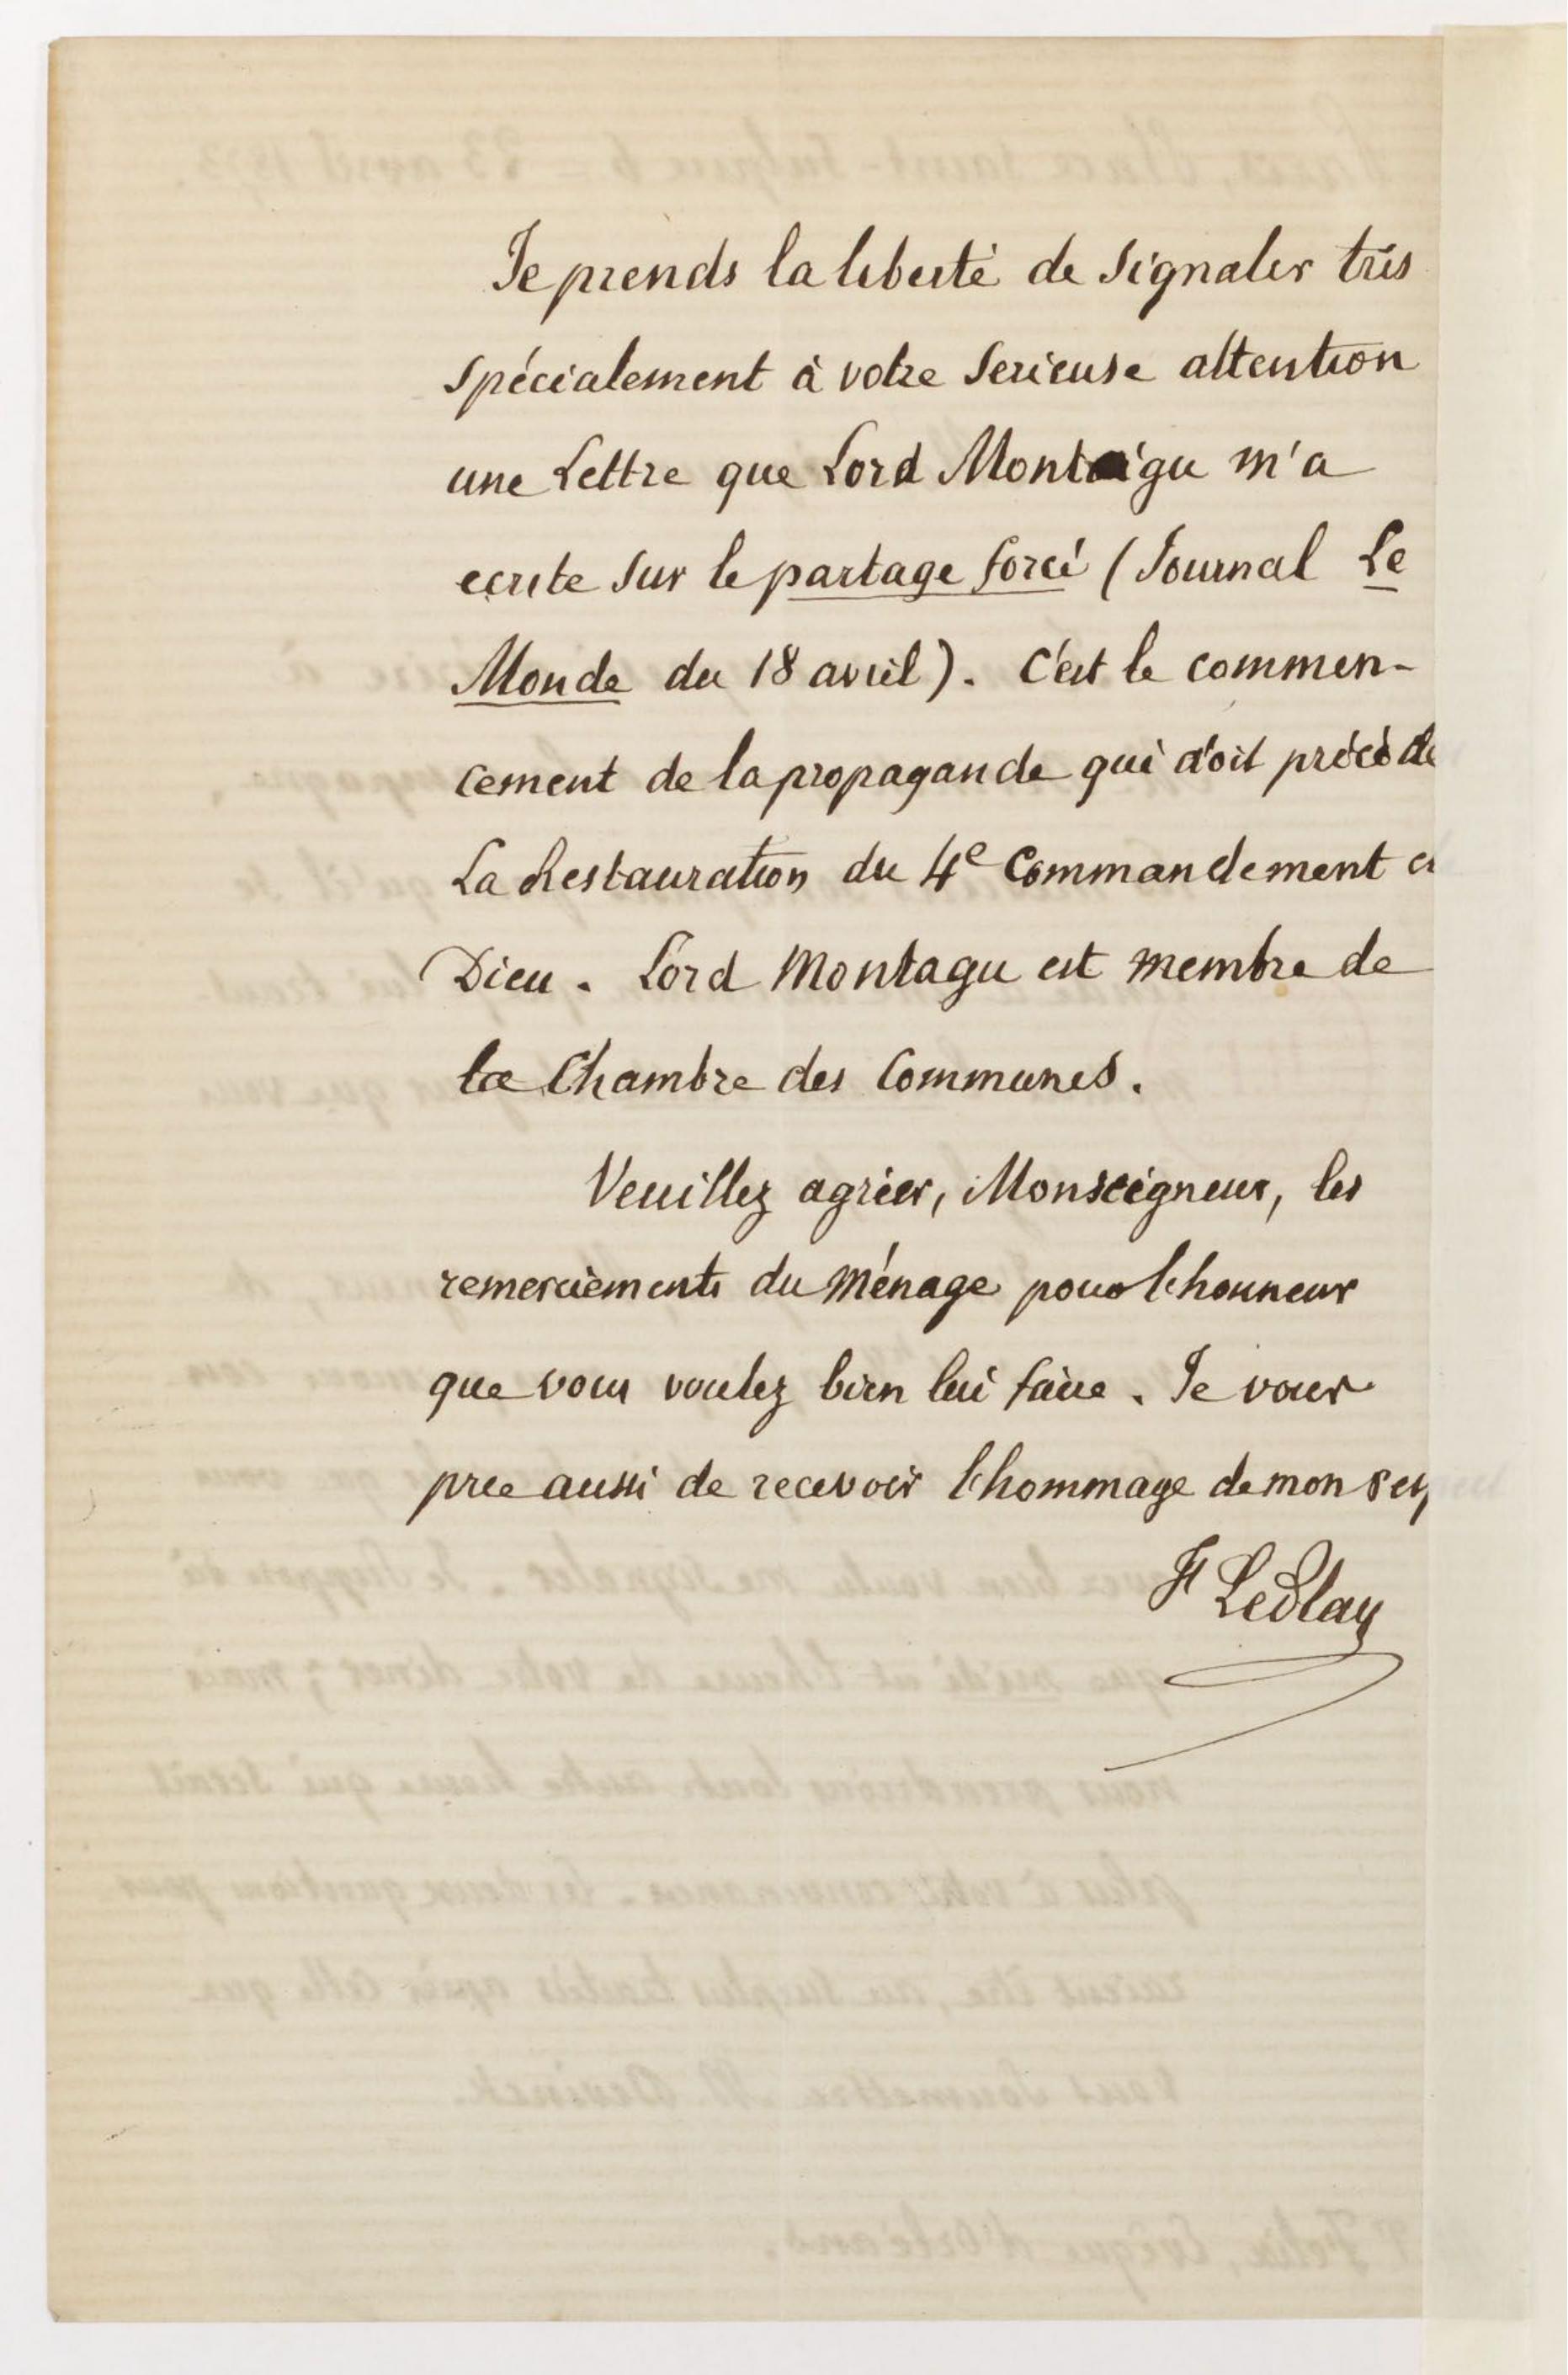 Je prends la liberté de signaler très
spécialement à votre serieuse attention
une Lettre que Lord Montaigu m'a
ecrite sur le partage forcé (Journal Le
Monde du 18 avril). C'est le commen-
cement de la propagande qui doit précéde
La Restauration du 4e Commandement
Dieu. Lord Montagu est membre de
la Chambre des Communes.
Veuillez agréer, Monseigneur, les
remerciements du ménage pour l'honneur
que vous voulez bien lui faire. Je vous
prie aussi de recevoir l'hommage de mon resp
F LePlay